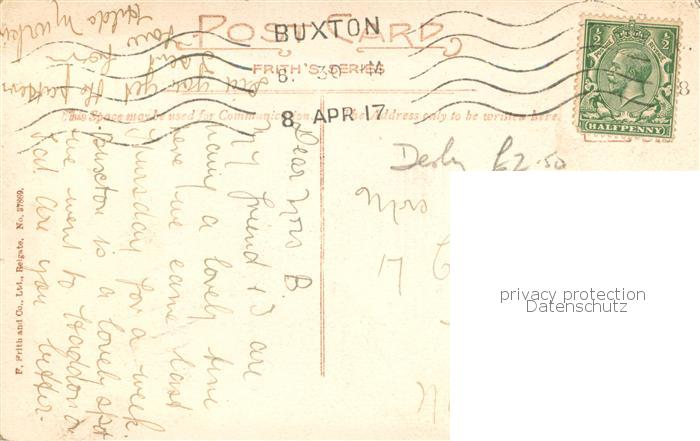 POST CARD
FRITH'S SERIES
BUXTON
8. 30 M
8 APR 17
This Space may be used for Communication.
The Address only to be written here.
½ ½
HALFPENNY
8
Derby £2.50
17
privacy protection
Datenschutz
F. Frith and Co., Ltd., Reigate. No. 37869.
Dear Mrs B.
My friend & I are
having a lovely time
here we came last
Thursday for a week
Buxton is a lovely spot
we went to Haddon on
Sat are you better.
Did you get the pattern
I sent you from
Hilda